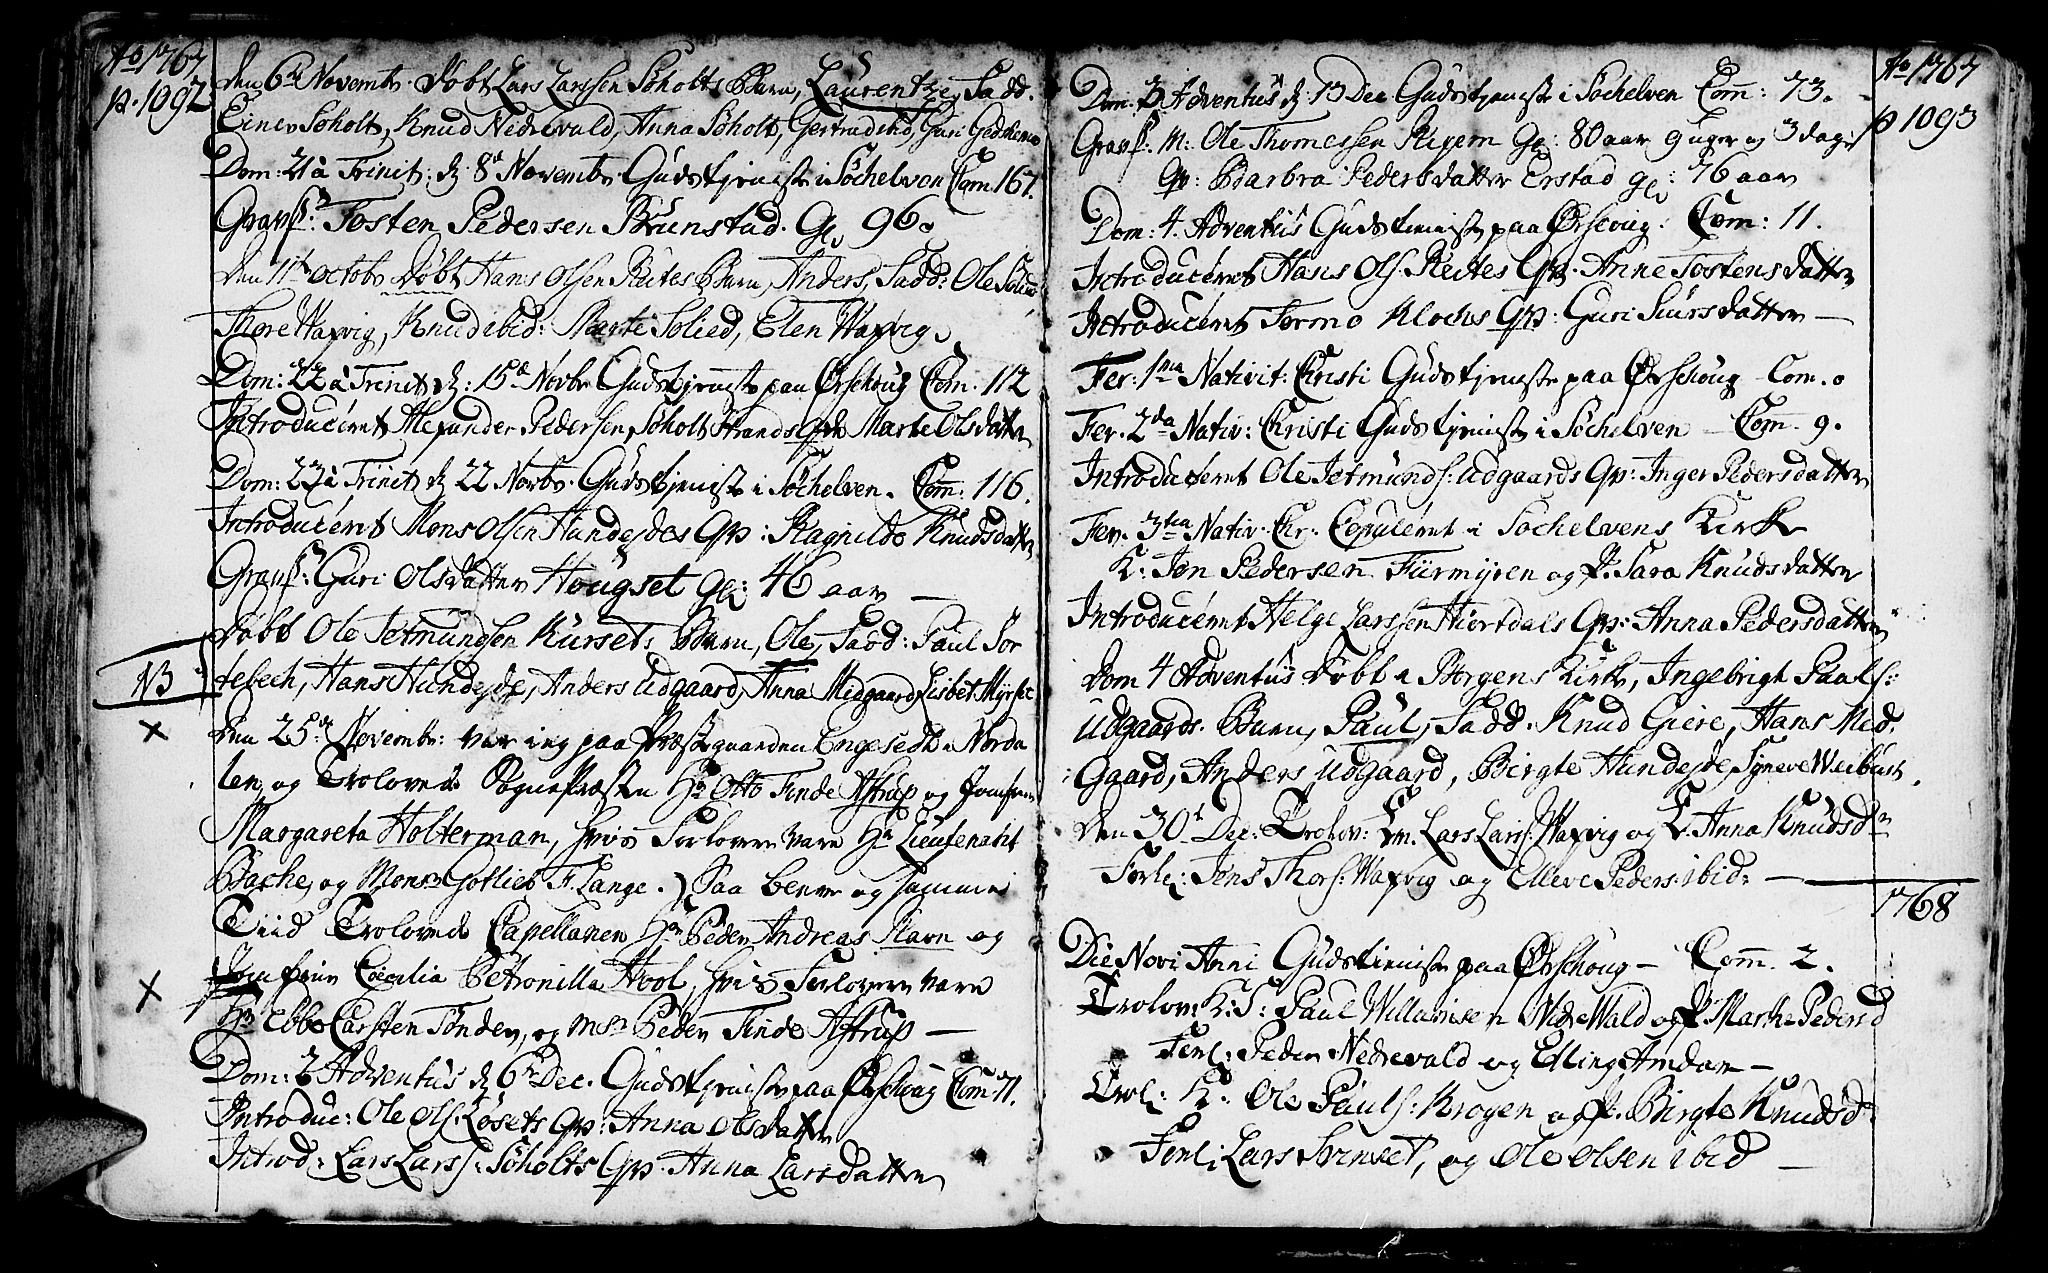 Ao 1767
p. 1092
den 6te Novembr. døbt Lars Larssen Søholts Barn, Laurentze, Fadd.
Einer Søholt, Knud Nedrevald, Anna Søholt, Gertrud ibid, Guri
Dom: 21 à Trinit: d. 8de Novembr Gudstjeniste i Søchelven Com 167.
Gravf: Tosten Pedersen Brunstad. Gl 96.
den 11te octobr døbt Hans Olsen Reites Barn, Anders, Fadd: Ole
Thore Waxvig, Knud ibid: Marte Solied, Elen Waxvig.
Dom: 22 à Trinit d. 15de Novbr Gudstjeniste paa Ørschoug Com. 112
Introduceret Alexander Pedersen Søholt Strands Qv: Marte Olsdatter
Dom: 23 à Trinit d 22 Novbr. Gudstjeniste i Søchelven. Com: 116.
Introduceret Mons Olsen Hundejdes Qv: Ragnilde Knudsdatter
Gravf: Guri Olsdatter Hougset gl: 46 aar
døbt Ole Jetmundsen Kursets Barn, Ole, Fadd: Paul Sor
tebech, Hans Hundejde, Anders Udgaard, Anna Midgaard, Lisbet Myrset
NB
den 25de Novembr: var jeg paa Præstegaarden Engesedt i Norda
len og Trolovede Sognepræsten Hr Otto Finde Astrup og Jomfrue
Margareta Holterman, hvis Forlovere vare Hr Lieutenant
Bache, og Monsr Gotlieb F. Lange. Saa blev og samme
Tiid Trolovede Capellanen Hr Peder Andreas Ravn og
Jomfrue Cecilia Petronilla Hool, hvis Forlovere vare
Hr Ebbe Carsten Tønder, og Msr Peder Finde Astrup
Dom: 2 Adventus d 6te Dec. Gudstjeniste paa Ørschoug Com 71.
Introduc: Ole Ols: Løsets Qv: Anna Olsdatter
Introd: Lars Lars: Søholts Qv. Anna Larsdatter
Ao 1767
p 1093
Dom. 3 Adventus d. 13 Dec Gudstjeniste i Søchelven Com: 73.
Gravf. M: Ole Thomessen Riksem Gl: 80 aar 9 uger og 3 dage
Qv: Barbra Pedersdatter Erstad gl: 76 aar
Dom: 4. Adventus Gudstjeniste paa Ørschoug. Com: 11.
Introduceret Hans Ols: Reites Qv. Anne Tostensdatter
Introduceret Tormo Kloches Qv: Guri Siursdatter
Fer: 1ma Nativit: Christi Gudstjeniste paa Ørschoug Com. 0
Fer. 2da Nativ: Christi Gudstjeniste i Søchelven Com. 9.
Introduceret Ole Jetmunds: Udgaards Qv: Inger Pedersdatter
Fer. 3tia Nativ. Chr. Copuleret i Søchelvens Kirk
K: Jon Pedersen Furmyren og P. Sara Knudsdatter
Introduceret Helge Larssen Hiortdals Qv: Anna Pedersdatter
Dom 4 Adventus døbt i Borgens Kirke, Ingebrigt Paals:
Udgaards. Barn, Paul, Fadd. Knud Giere, Hans Mid
Gaard, Anders Udgaard, Birgte Hundejde, Synneve Weibust.
den 30te Dec: Trolov: Em. Lars Lars: Waxvig og E. Anna Knudsdr
Forl: Jens Thors: Waxvig og Elleve Peders: ibid:
1768
Die Novi Anni Gudstjeniste paa Ørschoug Com. 2.
Trolov: K: S: Paul Willumsen Nedrewald og P. Marthe Pedersd
Forl: Peder Nedrevald og Elling Amdam
Trol: K: Ole Pauls: Krogen og P. Birgte Knudsd.
Forl: Lars, og Ole Olsen ibid